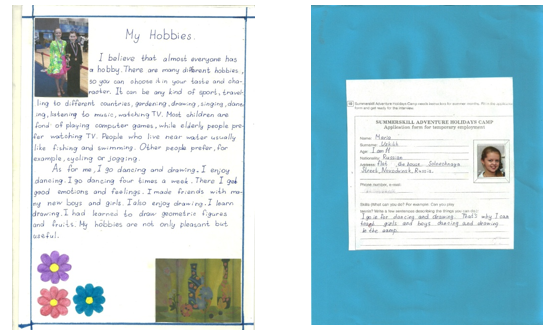 My Hobbies.
I believe that almost everyone has
a hobby. There are many different hobbies,
so you can choose it in your taste and cha-
racter. It can be any kind of sport, travel-
ling to different countries, gardening, drawing, singing, danc-
ing, listening to music, watching TV. Most children are
fond of playing computer games, while elderly people pre-
fer watching TV. People who live near water usually
like fishing and swimming. Other people prefer, for
example, cycling or jogging.
As for me, I go dancing and drawing. I enjoy
dancing. I go dancing four times a week. There I get
good emotions and feelings. I made friends with ma-
ny new boys and girls. I also enjoy drawing. I learn
drawing. I had learned to draw geometric figures
and fruits. My hobbies are not only pleasant but
useful.
SUMMERSKILL ADVENTURE HOLIDAYS CAMP
Application form for temporary employment
Name: Maria
Surname:
Age: I am 11
Nationality: Russian
Address: Flat the house
Street, Russia.
Phone number, e-mail:
Skills (What can you do? For example: Can you play
tennis? Write a few sentences describing the things you can do):
I go in for dancing and drawing. That's why I can
teach girls and boys dancing and drawing
in the camp.